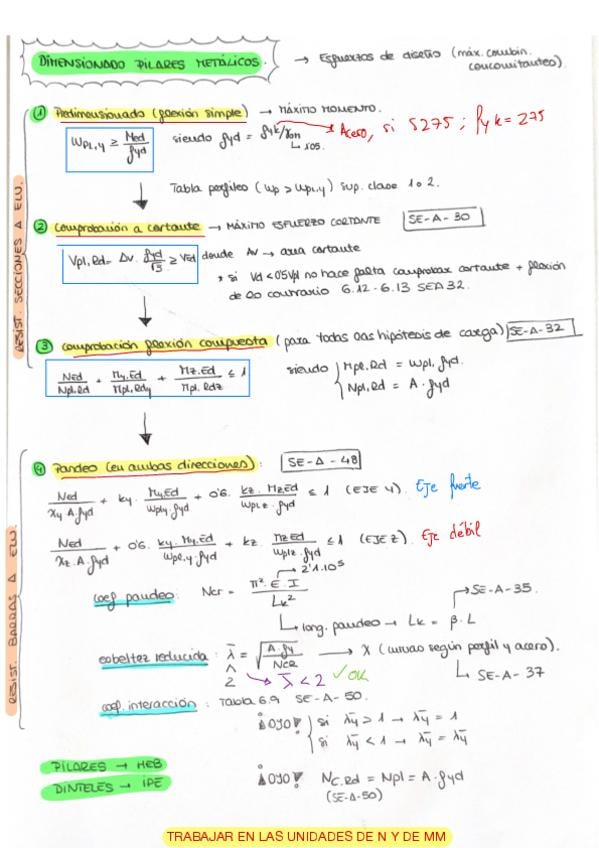 DIMENSIONADO PILARES METÁLICOS. → Esfuerzos de diseño (máx. combin. concomitantes).
RESIST. SECCIONES A ELU.
① Predimensionado (flexión simple) → MÁXIMO MOMENTO.
Wpl,y ≥ Med/fyd siendo fyd = fyk/γm → Acero, si S275; fyk = 275
↳ 1'05.
Tabla perfiles (Wp > Wpl,y) sup. clase 1 o 2.
② Comprobación a cortante → MÁXIMO ESFUERZO CORTANTE SE-A-30
Vpl,Rd = Av · fyd/√3 ≥ VEd donde Av → area cortante
* si Vd < 0'5 Vpl no hace falta comprobar cortante + flexión
de lo contrario 6.12 - 6.13 SEA 32.
③ Comprobación flexión compuesta (para todas las hipótesis de carga) SE-A-32
NEd/Npl.Rd + My.Ed/Mpl,Rdy + Mz.Ed/Mpl.Rdz ≤ 1 siendo Mpl.Rd = Wpl. fyd.
Npl,Rd = A · fyd
RESIST. BARRAS A ELU.
④ Pandeo (en ambas direcciones): SE-A-48
NEd/χy A.fyd + ky · My.Ed/Wply.fyd + 0'6 · kz · Mz.Ed/Wplz · fyd ≤ 1 (EJE Y). Eje fuerte
NEd/χz.A.fyd + 0'6 · ky · My.Ed/Wpl.y.fyd + kz · MzEd/Wplz.fyd ≤ 1 (EJE Z). Eje débil
→ 2'1·10⁵
coef pandeo: Ncr = π² · E · I/Lk² → SE-A-35.
↳ long. pandeo → Lk = β · L
esbeltez reducida : λ̄ = √A.fy/Ncr → χ (curvas según perfil y acero).
^
2 → λ̄ < 2 ✓ OK ↳ SE-A-37
coef. interacción : Tabla 6.9 SE-A-50.
¡OJO! si λ̄y > 1 → λ̄y = 1
si λ̄y < 1 → λ̄y = λ̄y
PILARES → HEB
DINTELES → IPE
¡OJO! Nc.Rd = Npl = A · fyd
(SE-A-50)
TRABAJAR EN LAS UNIDADES DE N Y DE MM